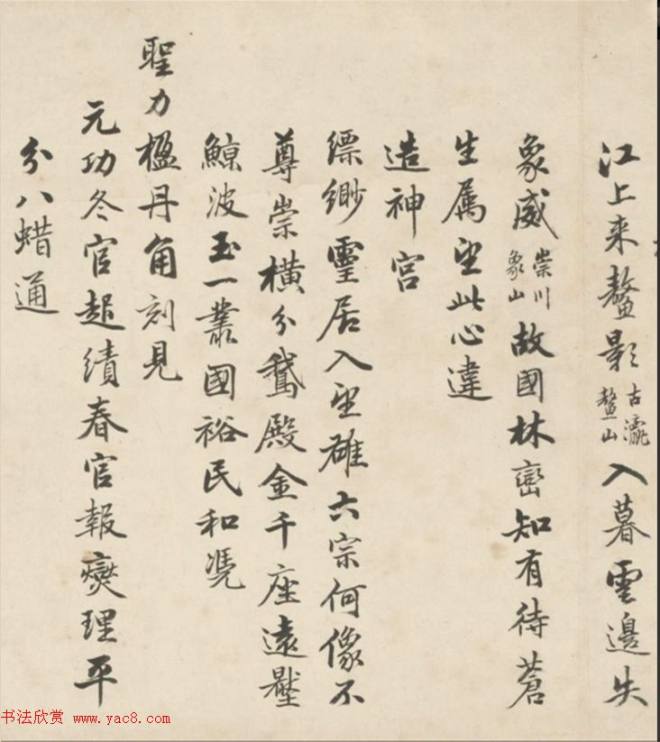 江上来鼇影古瀛鼇山入暮雲邊失
象威崇川象山故國林巒知有待蒼
生属望此心違
造神宫
缥缈靈居入望雄六宗何像不
尊崇橫分鵝殿金千座遠壓
鯨波玉一叢國裕民和凴
聖力楹丹角刻見
元功冬官起績春官報爕理平
分八蜡通
书法欣赏 www.yac8.com